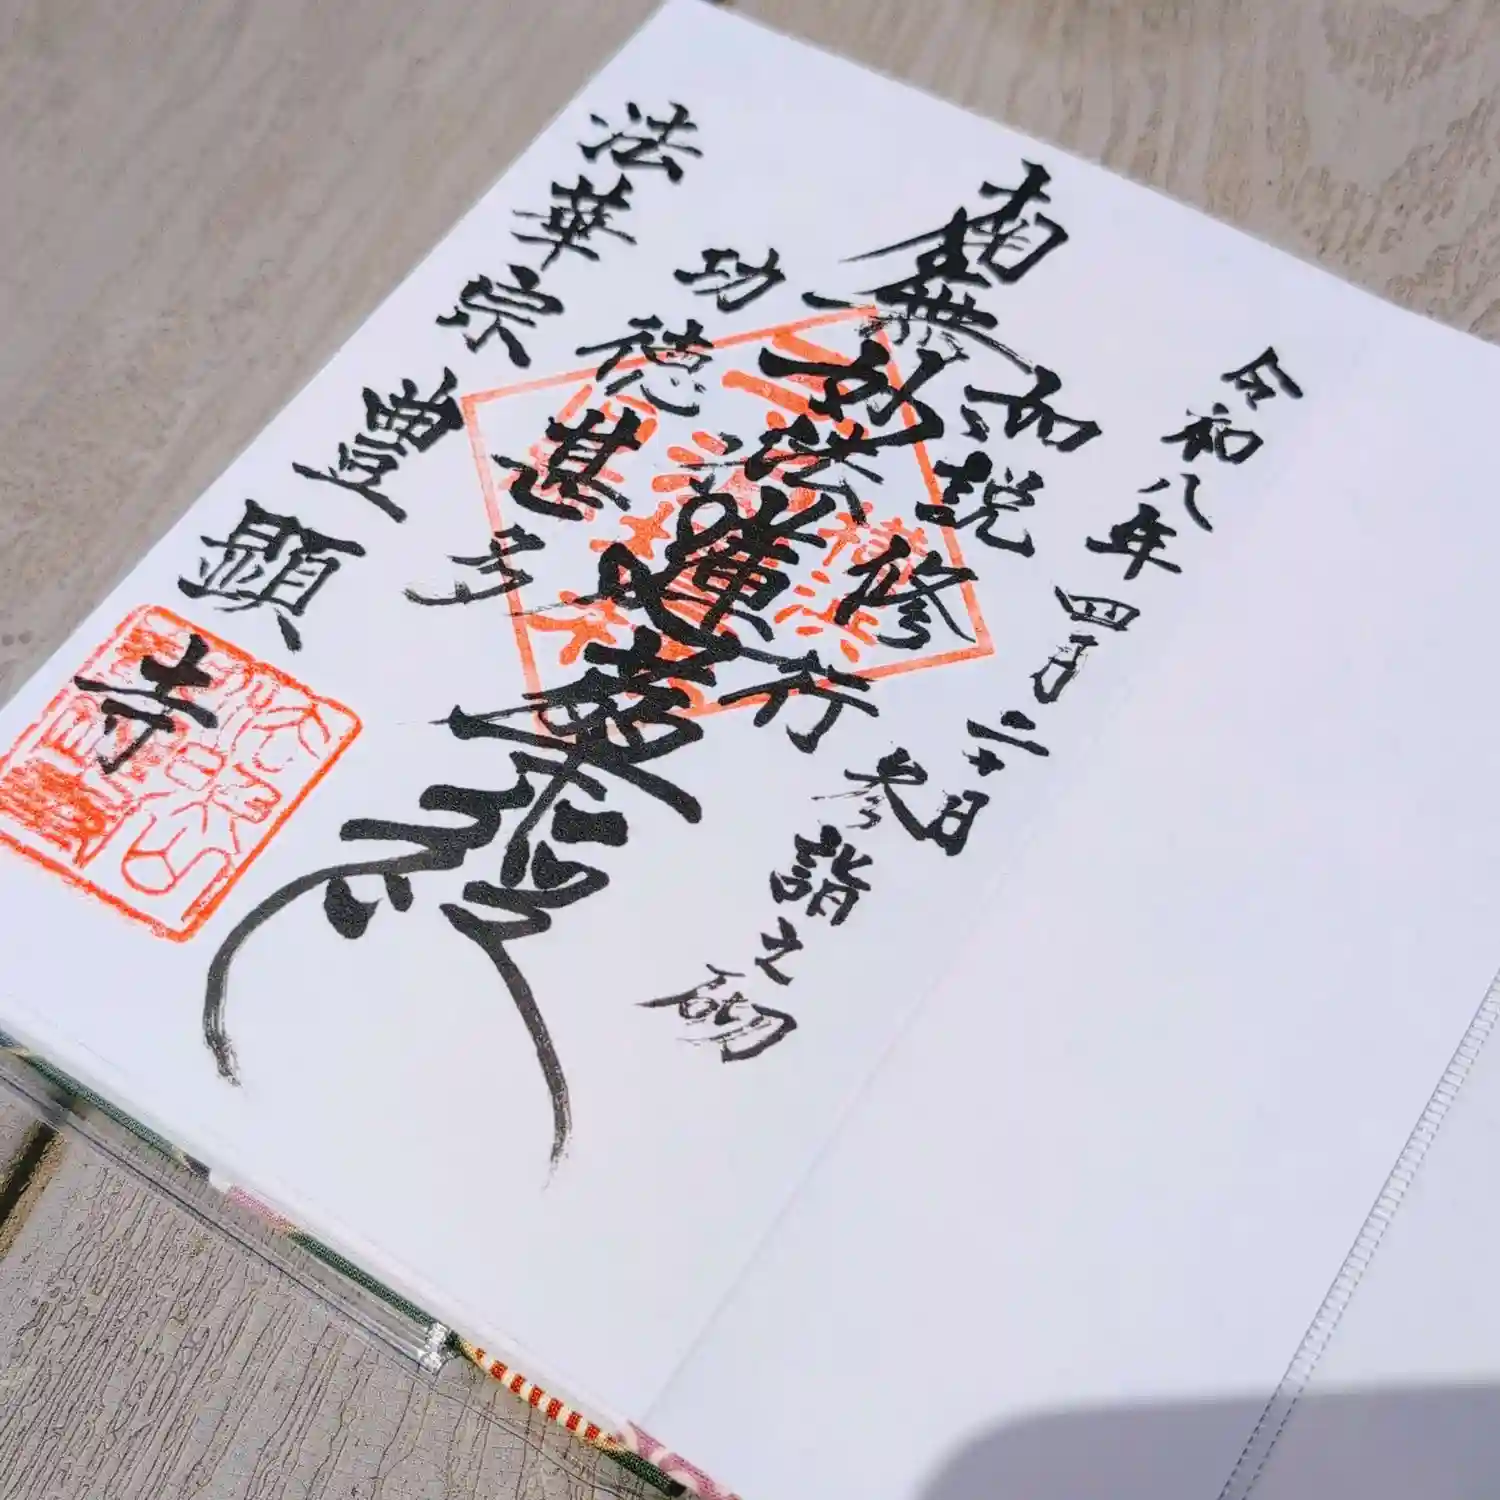 令和八年四月二十日
参詣之砌
如説修行
南無妙法蓮華経
功徳甚多
法華宗豊顕寺
横浜